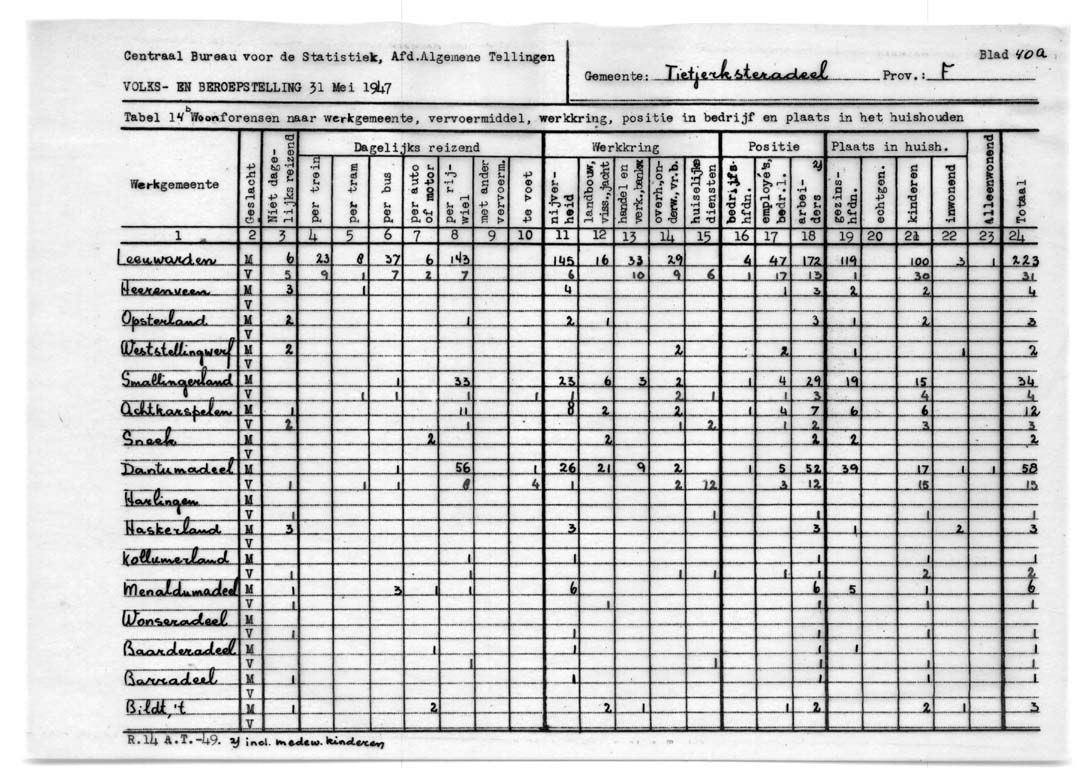 Centraal Bureau voor de Statistiek, Afd.Algemene Tellingen
Gemeente: Tietjerksteradeel Prov.: F
Blad 40a
VOLKS- EN BEROEPSTELLING 31 Mei 1947
Tabel 14b Woonforensen naar werkgemeente, vervoermiddel, werkkring, positie in bedrijf en plaats in het huishouden
Werkgemeente Geslacht Niet dage-lijks reizend Dagelijks reizend Werkkring Positie Plaats in huish. Alleenwonend Totaal
per trein per tram per bus per auto of motor per rij-wiel met ander vervoerm. te voet nijver-heid landbouw, viss.,jacht handel en verk.,bankw overh.,on-derw.vr.b. huislijke diensten bedrijfs-hfdn. employé's, bedr.l. arbei-ders 2) gezins-hfdn. echtgen. kinderen inwonend
1 2 3 4 5 6 7 8 9 10 11 12 13 14 15 16 17 18 19 20 21 22 23 24
Leeuwarden M 6 23 8 37 6 143 145 16 33 29 4 47 172 119 100 3 1 223
V 5 9 1 7 2 7 6 10 9 6 1 17 13 1 30 31
Heerenveen M 3 1 4 1 3 2 2 4
V
Opsterland M 2 1 2 1 3 1 2 3
V
Weststellingwerf M 2 2 2 1 1 2
V
Smallingerland M 1 33 23 6 3 2 1 4 29 19 15 34
V 1 1 1 1 1 2 1 1 3 4 4
Achtkarspelen M 1 11 8 2 2 1 4 7 6 6 12
V 2 1 1 2 1 2 3 3
Sneek M 2 2 2 2 2
V
Dantumadeel M 1 56 1 26 21 9 2 1 5 52 39 17 1 1 58
V 1 1 1 8 4 1 2 12 3 12 15 15
Harlingen M
V 1 1 1 1 1
Haskerland M 3 3 3 1 2 3
V
Kollumerland M 1 1 1 1 1
V 1 1 1 1 1 1 2 2
Menaldumadeel M 3 1 1 6 6 5 1 6
V 1 1 1 1 1
Wonseradeel M
V 1 1 1 1 1
Baarderadeel M 1 1 1 1 1
V 1 1 1 1 1
Barradeel M 1 1 1 1 1
V
Bildt,'t M 1 2 2 1 1 2 2 1 3
V
R.14 A.T.-49. 2) incl. medew. kinderen